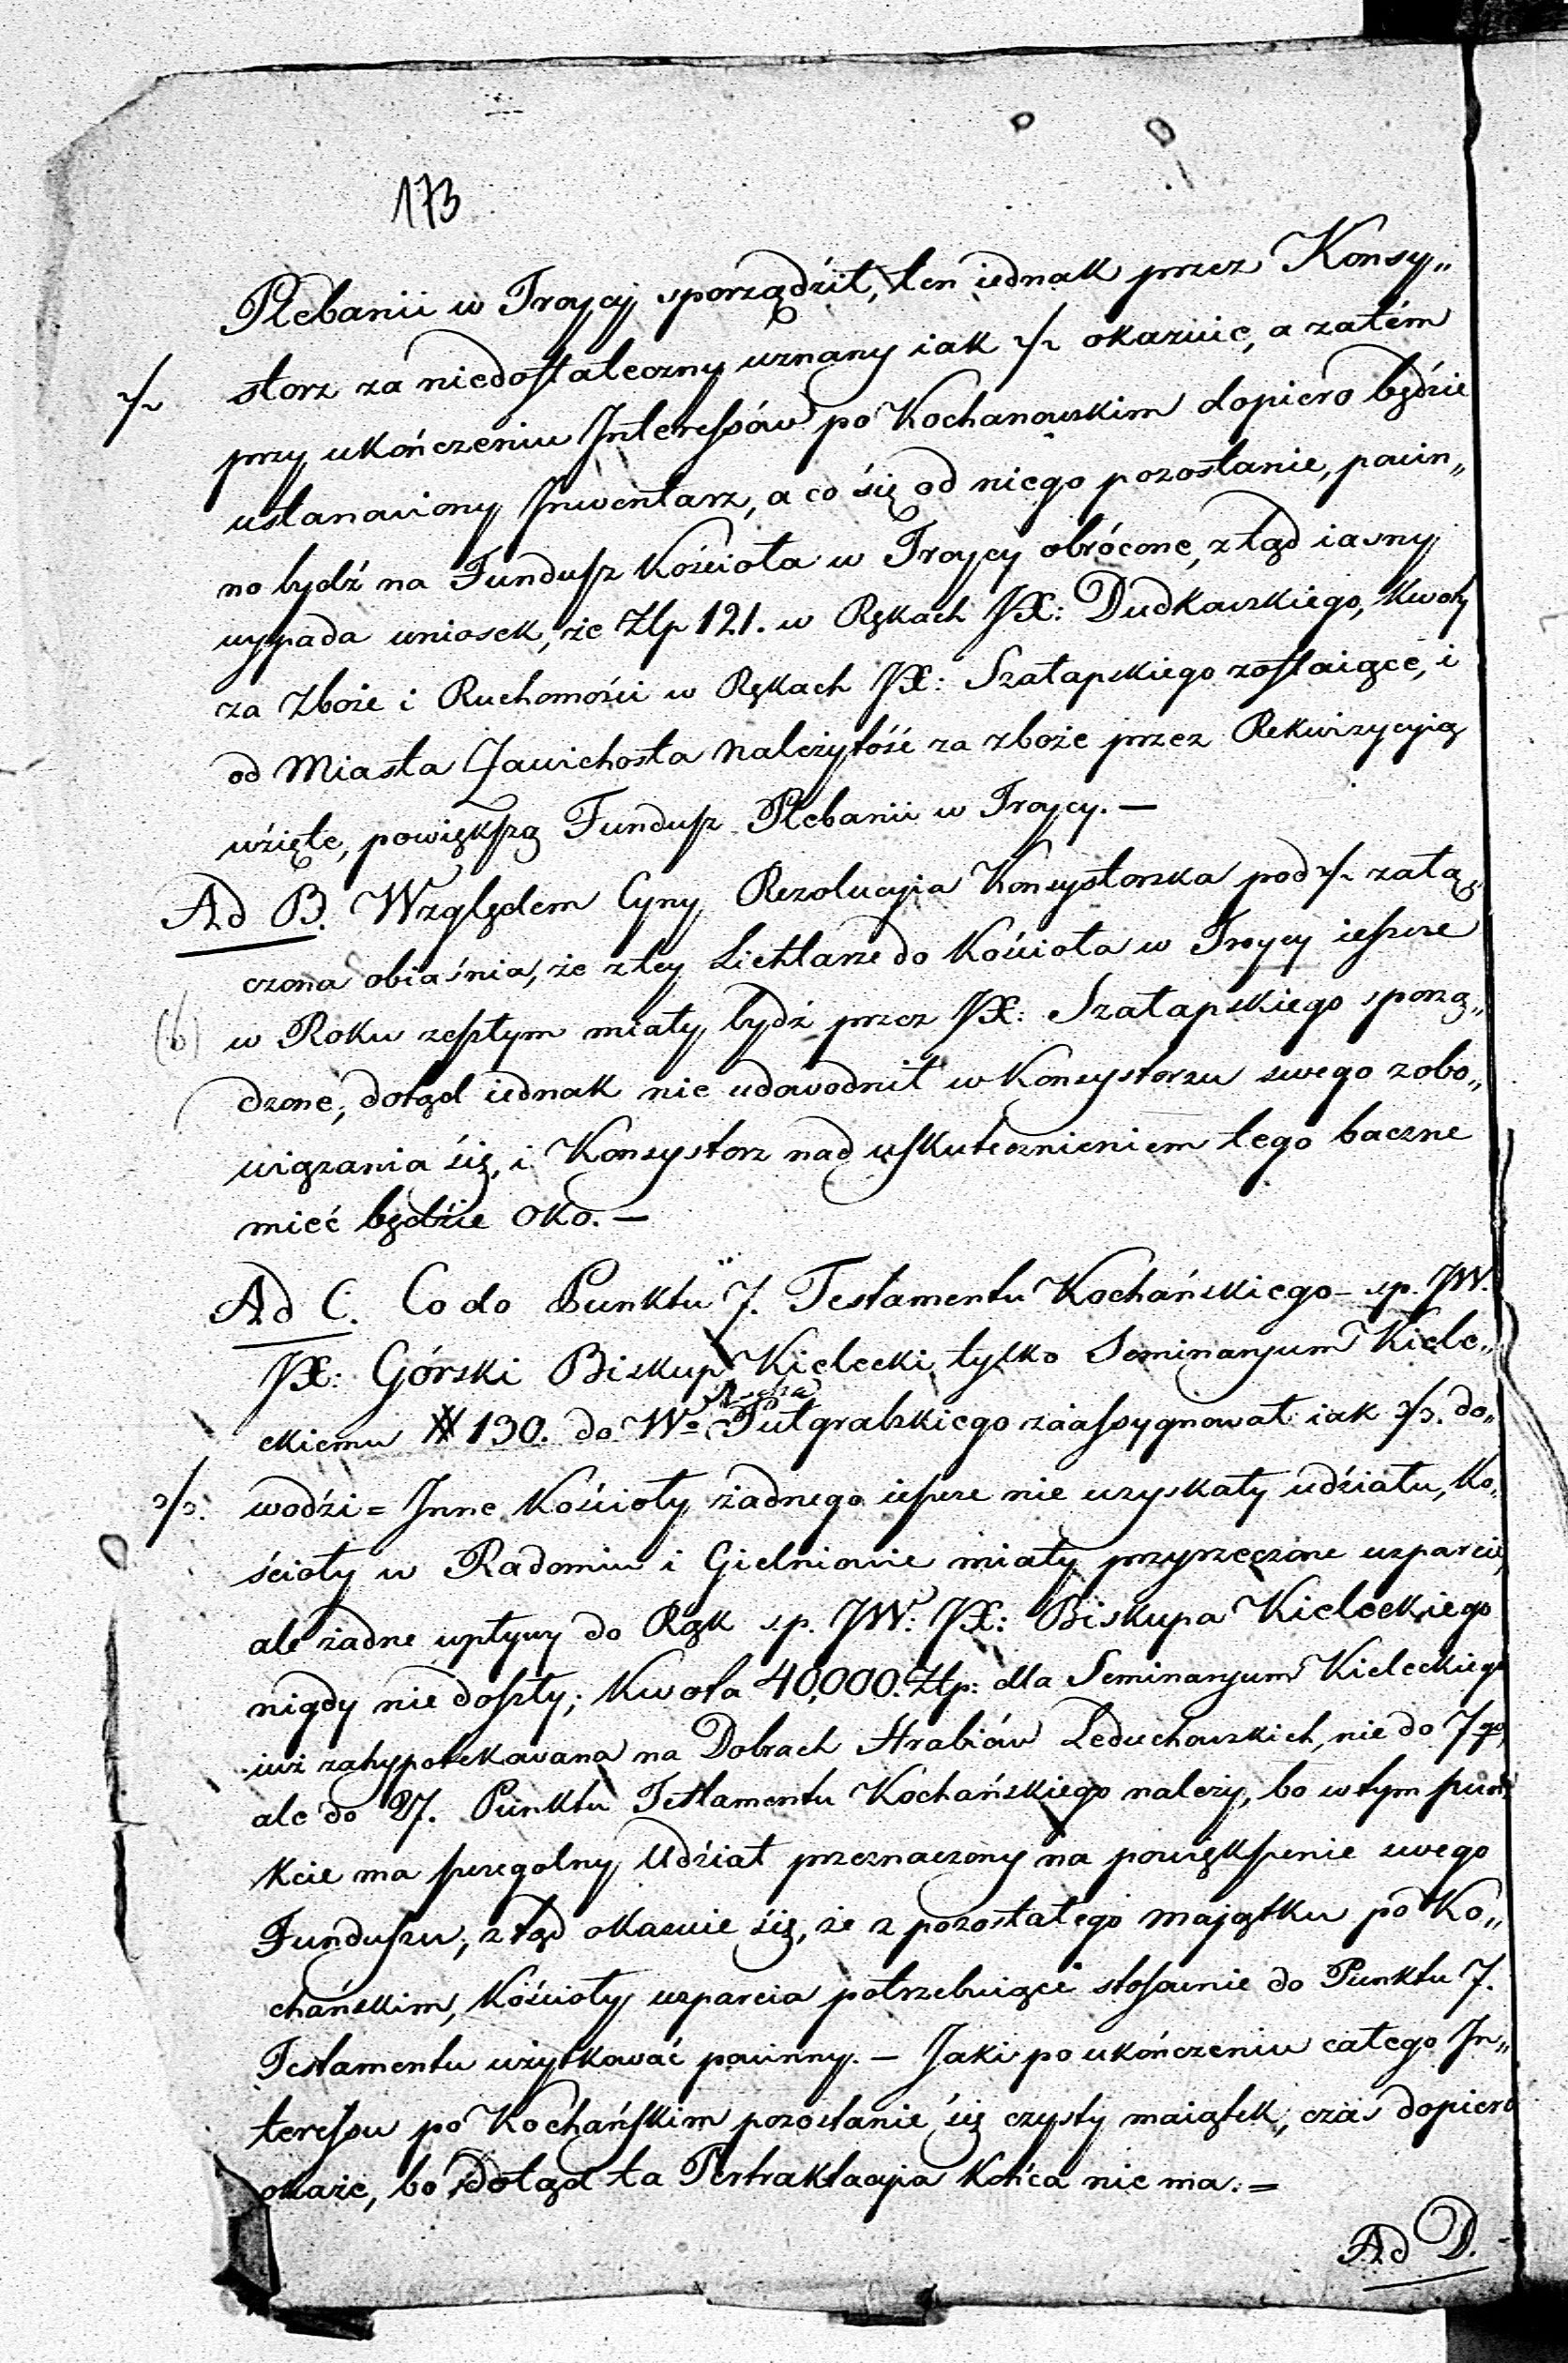 173
Plebanii w Troycy sporządził, ten iednak przez Konsy„
storz za niedostateczny uznany iak ·/. okazuie, a zatém
przy ukończeniu Interessów po Kochanowskim dopiero będzie
ustanowiony Inwentarz, a co się od niego pozostanie, powin„
no bydź na Fundusz Kościoła w Troycy obrócone, ztąd iasny
wypada wniosek, że Złp 121. w Rękach JX: Dudkowskiego, kwoty
za Zboże i Ruchomości w Rękach JX: Szałapskiego zostaiące, i
od Miasta Zawichosta Należytość za zboże przez Rekwizycyią
wźięte, powiększą Fundusz Plebanii w Troycy. —
Ad B. Względem Cyny Rezolucyia Konsystorska pod ·/. załą„
czona obiaśnia, że z tey Lichtarze do Kościoła w Troycy ieszcze
(b) w Roku zeszłym miały bydź przez JX: Szałapskiego sporzą„
dzone, dotąd iednak nie udowodnił w Konsystorzu swego zobo„
wiązania się, i Konsystorz nad uskutecznieniem tego baczne
mieć będzie oko. —
Ad C. Co do Punktu 7. Testamentu Kochańskiego – sp. JW.
JX: Górski Biskup Kielecki tylko Seminaryum Kiele„
ckiemu # 130. do Wo Putgralskiego zaassygnował iak ·/.. do„
·/.. wodźi = Inne Kościoły żadnego ieszcze nie uzyskały udźiału, Ko„
ścioły w Radomiu i Gielniowie miały przyrzeczone wsparcie,
ale żadne wpływy do Rąk sp. JW. JX: Biskupa Kieleckiego
nigdy nie doszły; Kwota 40,000. Złp: dla Seminaryum Kieleckiego
iuż zahypotekowana na Dobrach Hrabiów Leduchowskich, nie do 7go,
ale do Punktu Testamentu Kochańskiego należy, bo w tym pun„
kcie ma szczegolny Udźiał przeznaczony na powiększenie swego
Funduszu; ztąd okazuie się, że z pozostałego majątku po Ko„
chańskim, Kościoły wsparcia potrzebuiące stosownie do Punktu 7.
Testamentu użytkować powinny. — Jaki po ukończeniu całego In„
teressu po Kochańskim pozostanie się czysty maiątek, czas dopiero
okaże, bo dotąd ta Pertraktacyia Końca nie ma. =
Ad D.